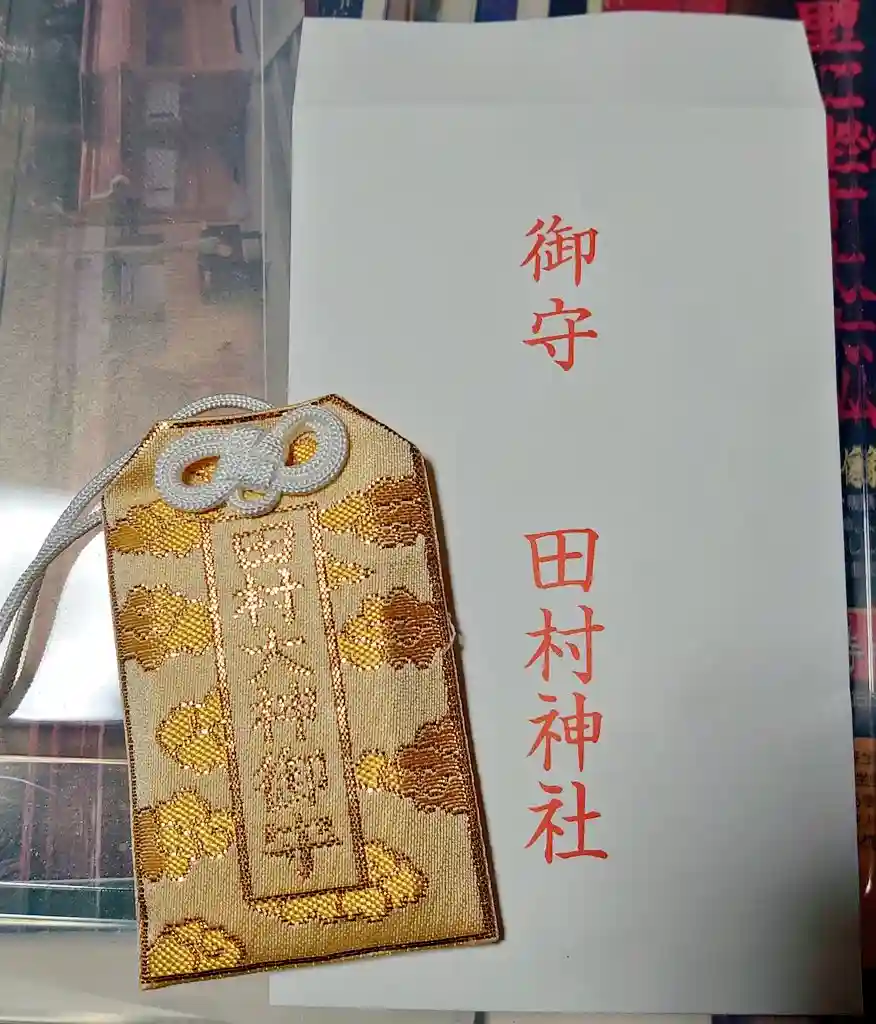 御守
田村神社
田村大神御守